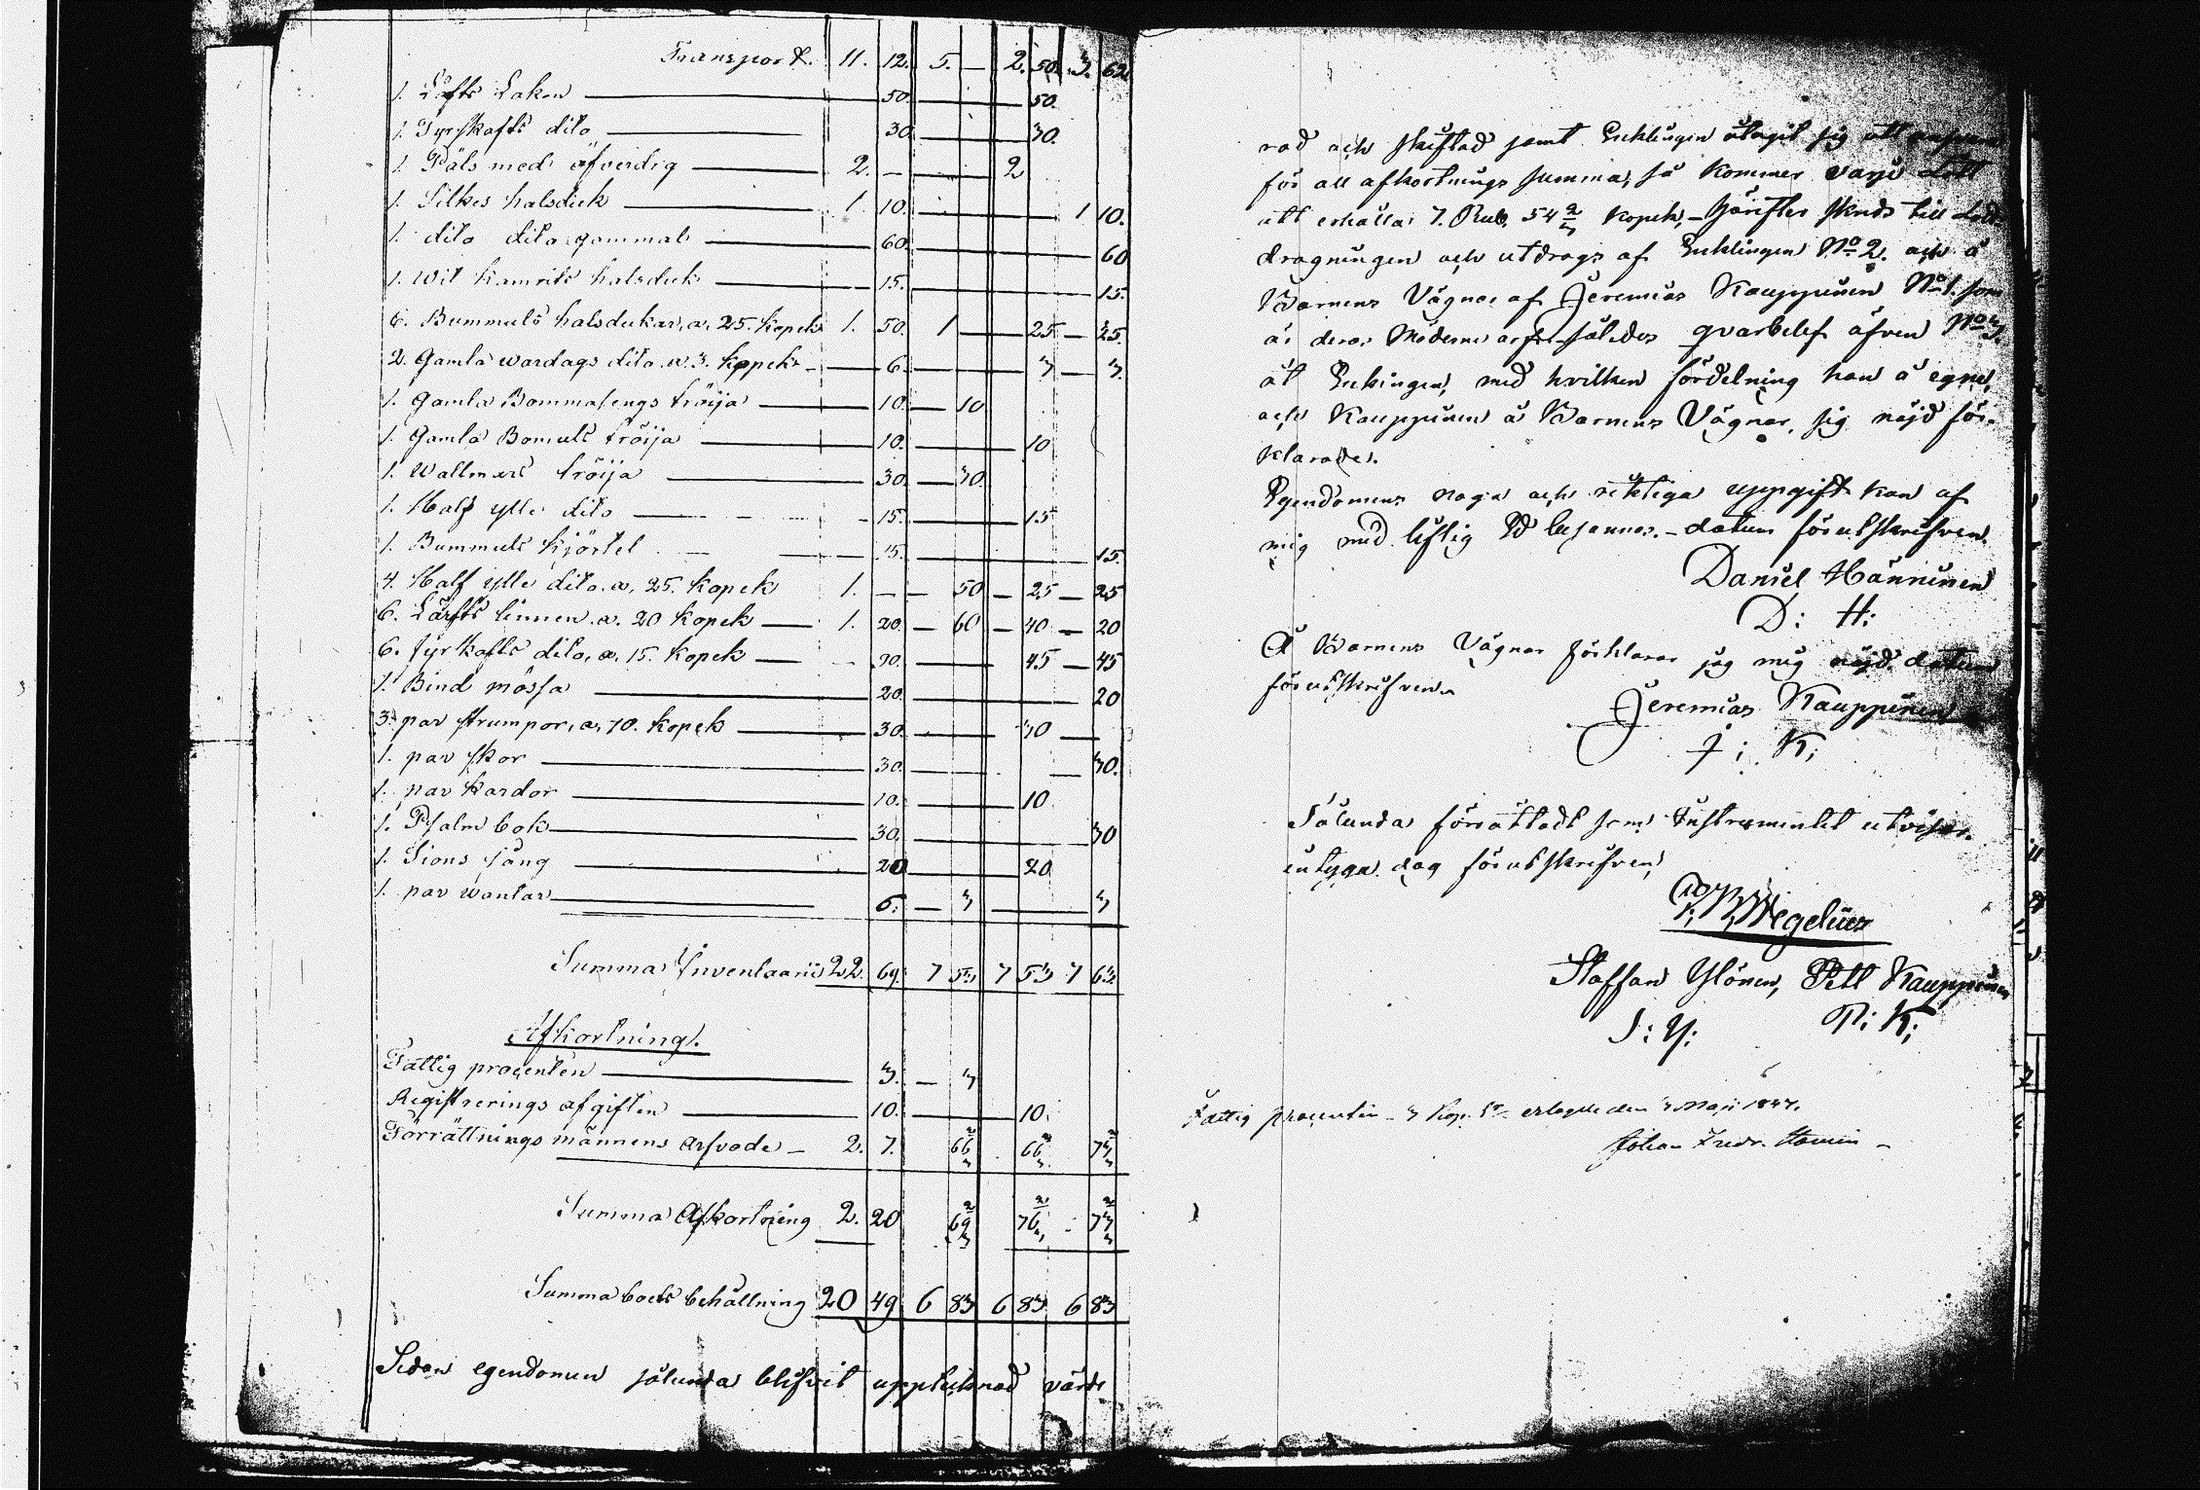 Transport. 11. 12. 5. — 2. 50. 3. 62
1. Läfts Laken — 50. — 50.
1. Fyrskafts dito — 30 — 30.
1. Päls med öfverdig — 2. — — 2
1. Silkes halsduk — 1. 10. — 1 10.
1. dito dito gammal — 60 — 60
1. Wit Kamriks halsduk — 15. — 15.
6. Bummuls halsdukar, a. 25. Kopek 1. 50. 1 — 25 — 25.
2. Gamla wardags dito. a. 3. Kopek — 6. — 3 — 3.
1. Gamla Bommasengs tröija — 10. — 10
1. Gamla Bomuls tröija — 10. — 10
1. Wallmars tröija — 30. — 30.
1. Half ylle dito — 15. — 15
1. Bummuls Kjörtel — 15. — 15.
4. Half ylle dito. a. 25. Kopek 1. — — 50 — 25 — 25
6. Lärfts linnen. a. 20 Kopek — 1. 20. — 60 — 40 — 20
6. fyrkafts dito, a. 15. Kopek — 90. — 45 — 45
1. Bind mössa — 20. — 20
3. par strumpor, a. 10. Kopek — 30. — 30 —
1. par skor — 30. — 30.
1. par Kardor — 10. — 10
1. Psalm bok — 30. — 30
1. Sions sång — 20 — 20
1. par wantar — 6. — 3 — 3
Summa Inventaarii 22. 69. 7 53 7 53 7 63.
Afkortning.
Fattig procenten — 3. — 3
Registrerings afgiften — 10. — 10.
Förrättnings männens arfvode — 2. 7. 66 2/3 66 2/3 73 2/3
Summa Afkortning 2. 20 69 2/3 76 2/3 73 2/3
Summa boets behållning 20 49 6 83 6 83 6 83
Sedan egendomen sålunda blifvit upptecknad värde
rad och skiftad samt Enklingen åtagit sig att
för all afkortnings summa, så kommer varje Lott
att erhålla 7. Rub. 54 2/3 Kopek, — Härefter skreds till Lott
dragningen och utdrogs af Enklingen No 2. och å
Barnens Vägnar af Jeremias Kauppinen No 1. som
är deras Möderne arf, således qvarblef äfven No 3.
åt Enkingen, med hvilken fördelning han å egne,
och Kauppinen å Barnens Vägnar, sig nöjd för-
klarade.
Egendomens noga och riktiga uppgift kan af
mig med liflig Ed besannas. — datum förutskrifven.
Daniel Hänninen
D: H:
Å Barnens Vägnar förklarar jag mig nöjd. datum
förutskrifven
Jeremias Kauppinen
J: K:
Sålunda förrättadt som Instrumentet utvisar.
intyga dag förutskrifven
Wegelius
Staffan Ylönen, Pett Kauppinen
S: Y: P: K:
Fattig procenten 3 Kop. Sr erlagde den 3 Maji 1847.
Johan Fredr.